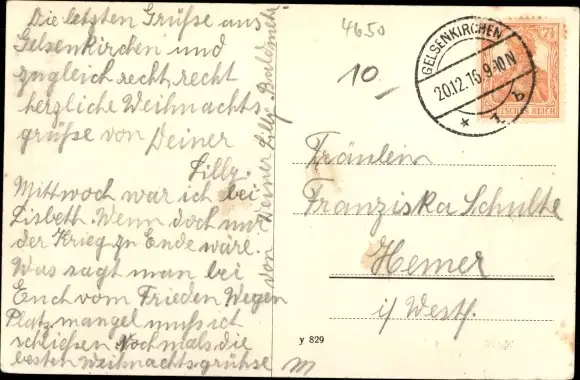 Die letzten Grüße aus
Gelsenkirchen und
zugleich recht, recht
herzliche Weihnachts
grüße von Deiner
Lilly.
Mittwoch war ich bei
Lisbeth. Wenn doch nur
der Krieg zu Ende wäre.
Was sagt man bei
Euch vom Frieden Wegen
Platzmangel muß ich
schließen Noch mals die
besten Weihnachtsgrühse
von Deiner Lilly.
4650
10,-
GELSENKIRCHEN
20.12.16.9-10N
* 1 b
7½
DEUTSCHES REICH
Fräulein
Franziska Schulte
Hemer
i/ Westf.
y 829